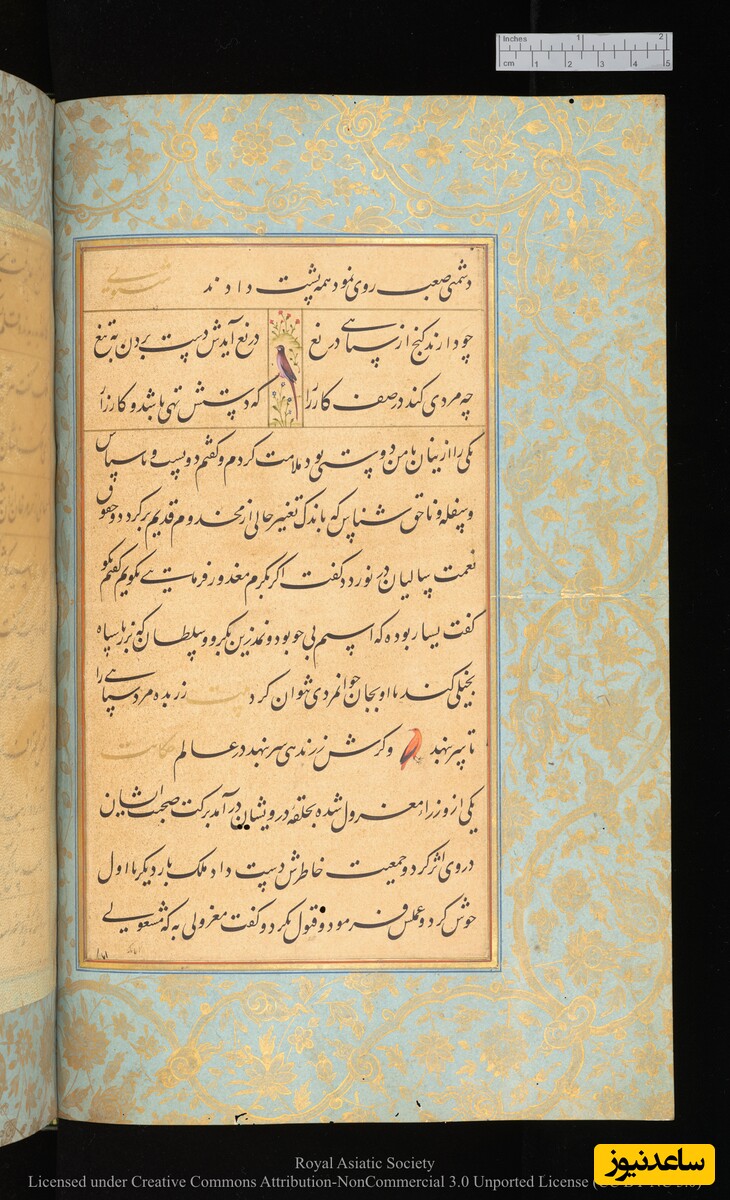 Inches 1 2
cm 1 2 3 4 5
دشمنی صعب روی نمود همه پشت دادند مثنوی
چو دارند گنج از سپاهی دریغ دریغ آیدش دست بردن به تیغ
چه مردی کند در صف کارزار که دستش تهی باشد و کارزار
یکی را از اینان با من دوستی بود ملامت کردم و گفتم دونست و ناسپاس
و سفله و ناحق شناس که باندک تغییر حالی از مخدوم قدیم برگردد و حقوق
نعمت سالیان در نوردد گفت اگر بکرم معذور فرمایی بگویم گفتم بگو
گفت یسار بوده که اسبم بی جو بود و نمد زین بگرو و سلطان که بزر با سپاه
بخیلی کند با او بجان جوانمردی نتوان کرد بیت زر بده مرد سپاهی را
تا سر بنهد وگرش زر ندهی سر بنهد در عالم حکایت
یکی از وزراء معزول شده بحلقه درویشان درآمد برکت صحبت ایشان
در وی اثر کرد و جمعیت خاطرش دست داد ملک بار دیگر با او دل
خوش کرد و عملش فرمود و قبول نکرد و گفت معزولی به که مشغولی
Royal Asiatic Society
Licensed under Creative Commons Attribution-NonCommercial 3.0 Unported License
ساعدنیوز